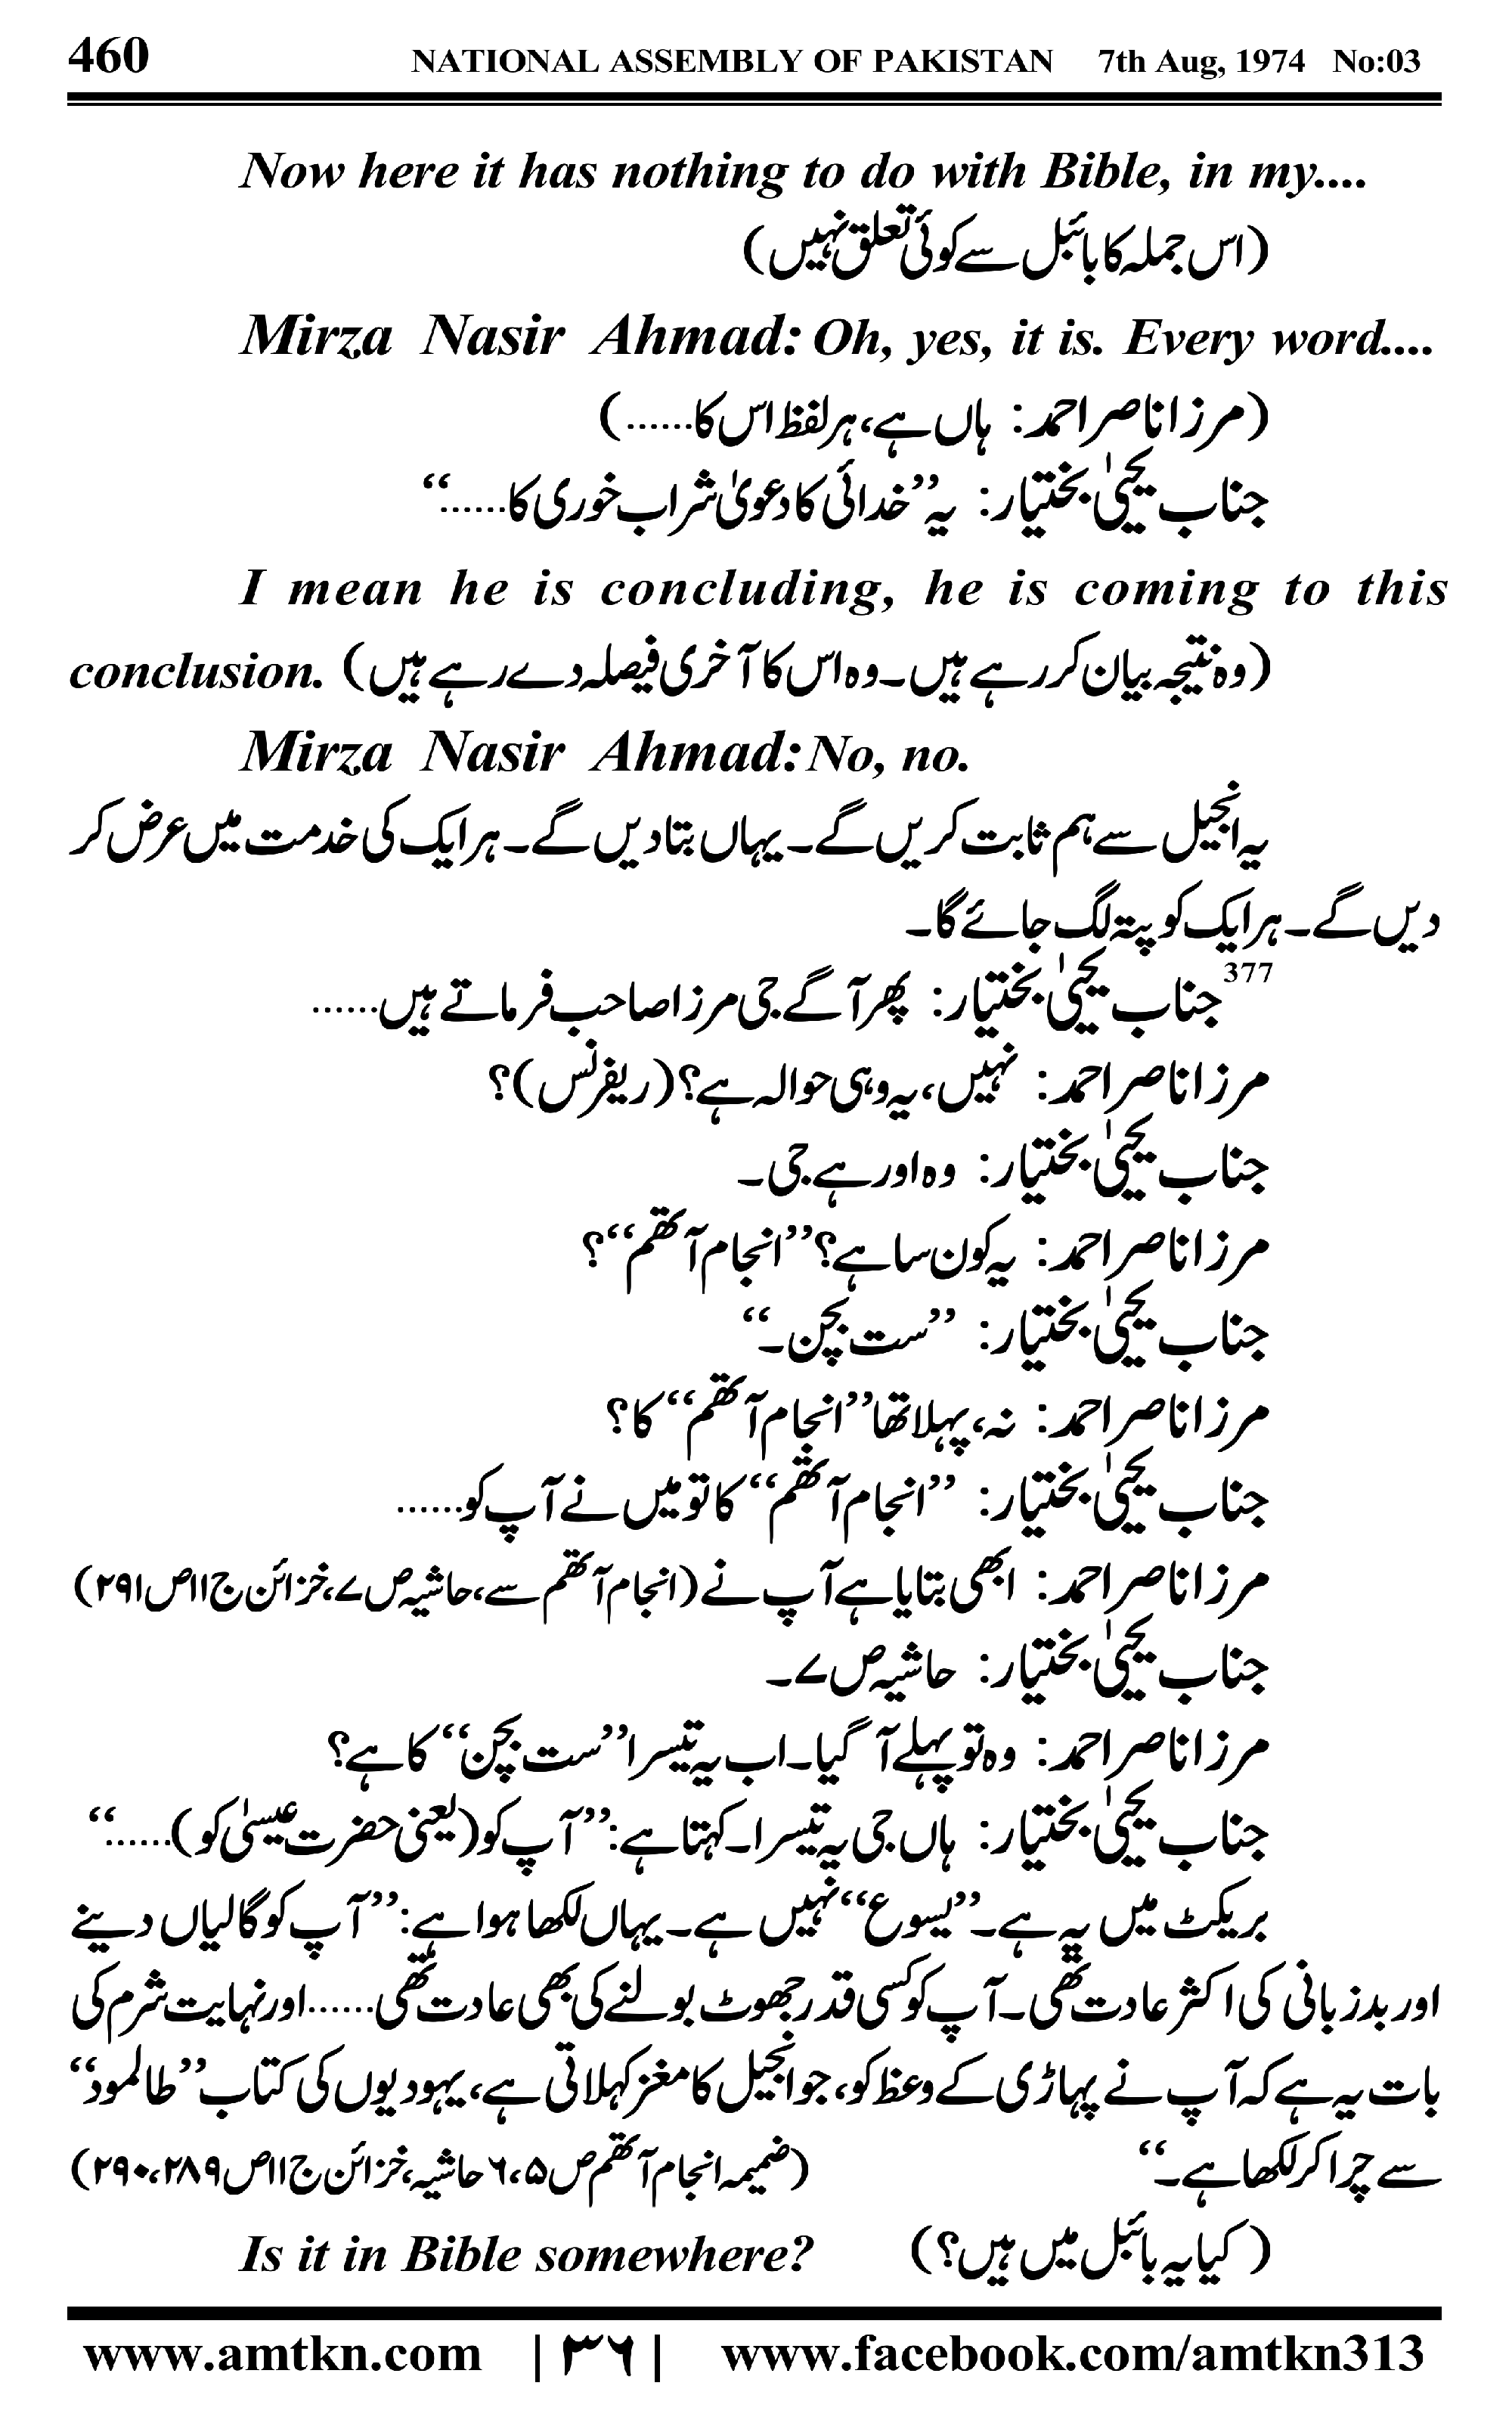 460 NATIONAL ASSEMBLY OF PAKISTAN 7th Aug, 1974 No:03
Now here it has nothing to do with Bible, in my....
(اس جملہ کا بائبل سے کوئی تعلق نہیں)
Mirza Nasir Ahmad: Oh, yes, it is. Every word....
(مرزاناصر احمد: ہاں ہے، ہر لفظ اس کا......)
جناب یحییٰ بختیار: یہ ’’خدائی کا دعویٰ شراب خوری کا......‘‘
I mean he is concluding, he is coming to this
conclusion. (وہ نتیجہ بیان کر رہے ہیں۔ وہ اس کا آخری فیصلہ دے رہے ہیں)
Mirza Nasir Ahmad: No, no.
یہ انجیل سے ہم ثابت کریں گے۔ یہاں بتا دیں گے۔ ہر ایک کی خدمت میں عرض کر
دیں گے۔ ہر ایک کو پتہ لگ جائے گا۔
377جناب یحییٰ بختیار: پھر آگے جی مرزا صاحب فرماتے ہیں......
مرزاناصر احمد: نہیں، یہ وہی حوالہ ہے؟ (ریفرنس)؟
جناب یحییٰ بختیار: وہ اور ہے جی۔
مرزاناصر احمد: یہ کون سا ہے؟ ’’انجام آتھم‘‘؟
جناب یحییٰ بختیار: ’’ست بچن۔‘‘
مرزاناصر احمد: نہ، پہلا تھا ’’انجام آتھم‘‘ کا؟
جناب یحییٰ بختیار: ’’انجام آتھم‘‘ کا تو میں نے آپ کو......
مرزاناصر احمد: ابھی بتایا ہے آپ نے (انجام آتھم سے، حاشیہ ص۷، خزائن ج۱۱ ص۲۹۱)
جناب یحییٰ بختیار: حاشیہ ص۷۔
مرزاناصر احمد: وہ تو پہلے آ گیا۔ اب یہ تیسرا ’’ست بچن‘‘ کا ہے؟
جناب یحییٰ بختیار: ہاں جی یہ تیسرا۔ کہتا ہے: ’’آپ کو (یعنی حضرت عیسیٰ کو)......‘‘
بریکٹ میں یہ ہے۔ ’’یسوع‘‘ نہیں ہے۔ یہاں لکھا ہوا ہے: ’’آپ کو گالیاں دینے
اور بدزبانی کی اکثر عادت تھی۔ آپ کو کسی قدر جھوٹ بولنے کی بھی عادت تھی...... اور نہایت شرم کی
بات یہ ہے کہ آپ نے پہاڑی کے وعظ کو، جو انجیل کا مغز کہلاتی ہے، یہودیوں کی کتاب ’’طالمود‘‘
سے چرا کر لکھا ہے۔‘‘ (ضمیمہ انجام آتھم ص۵،۶ حاشیہ، خزائن ج۱۱ ص۲۸۹،۲۹۰)
Is it in Bible somewhere? (کیا یہ بائبل میں ہیں؟)
www.amtkn.com | ۳۶ | www.facebook.com/amtkn313